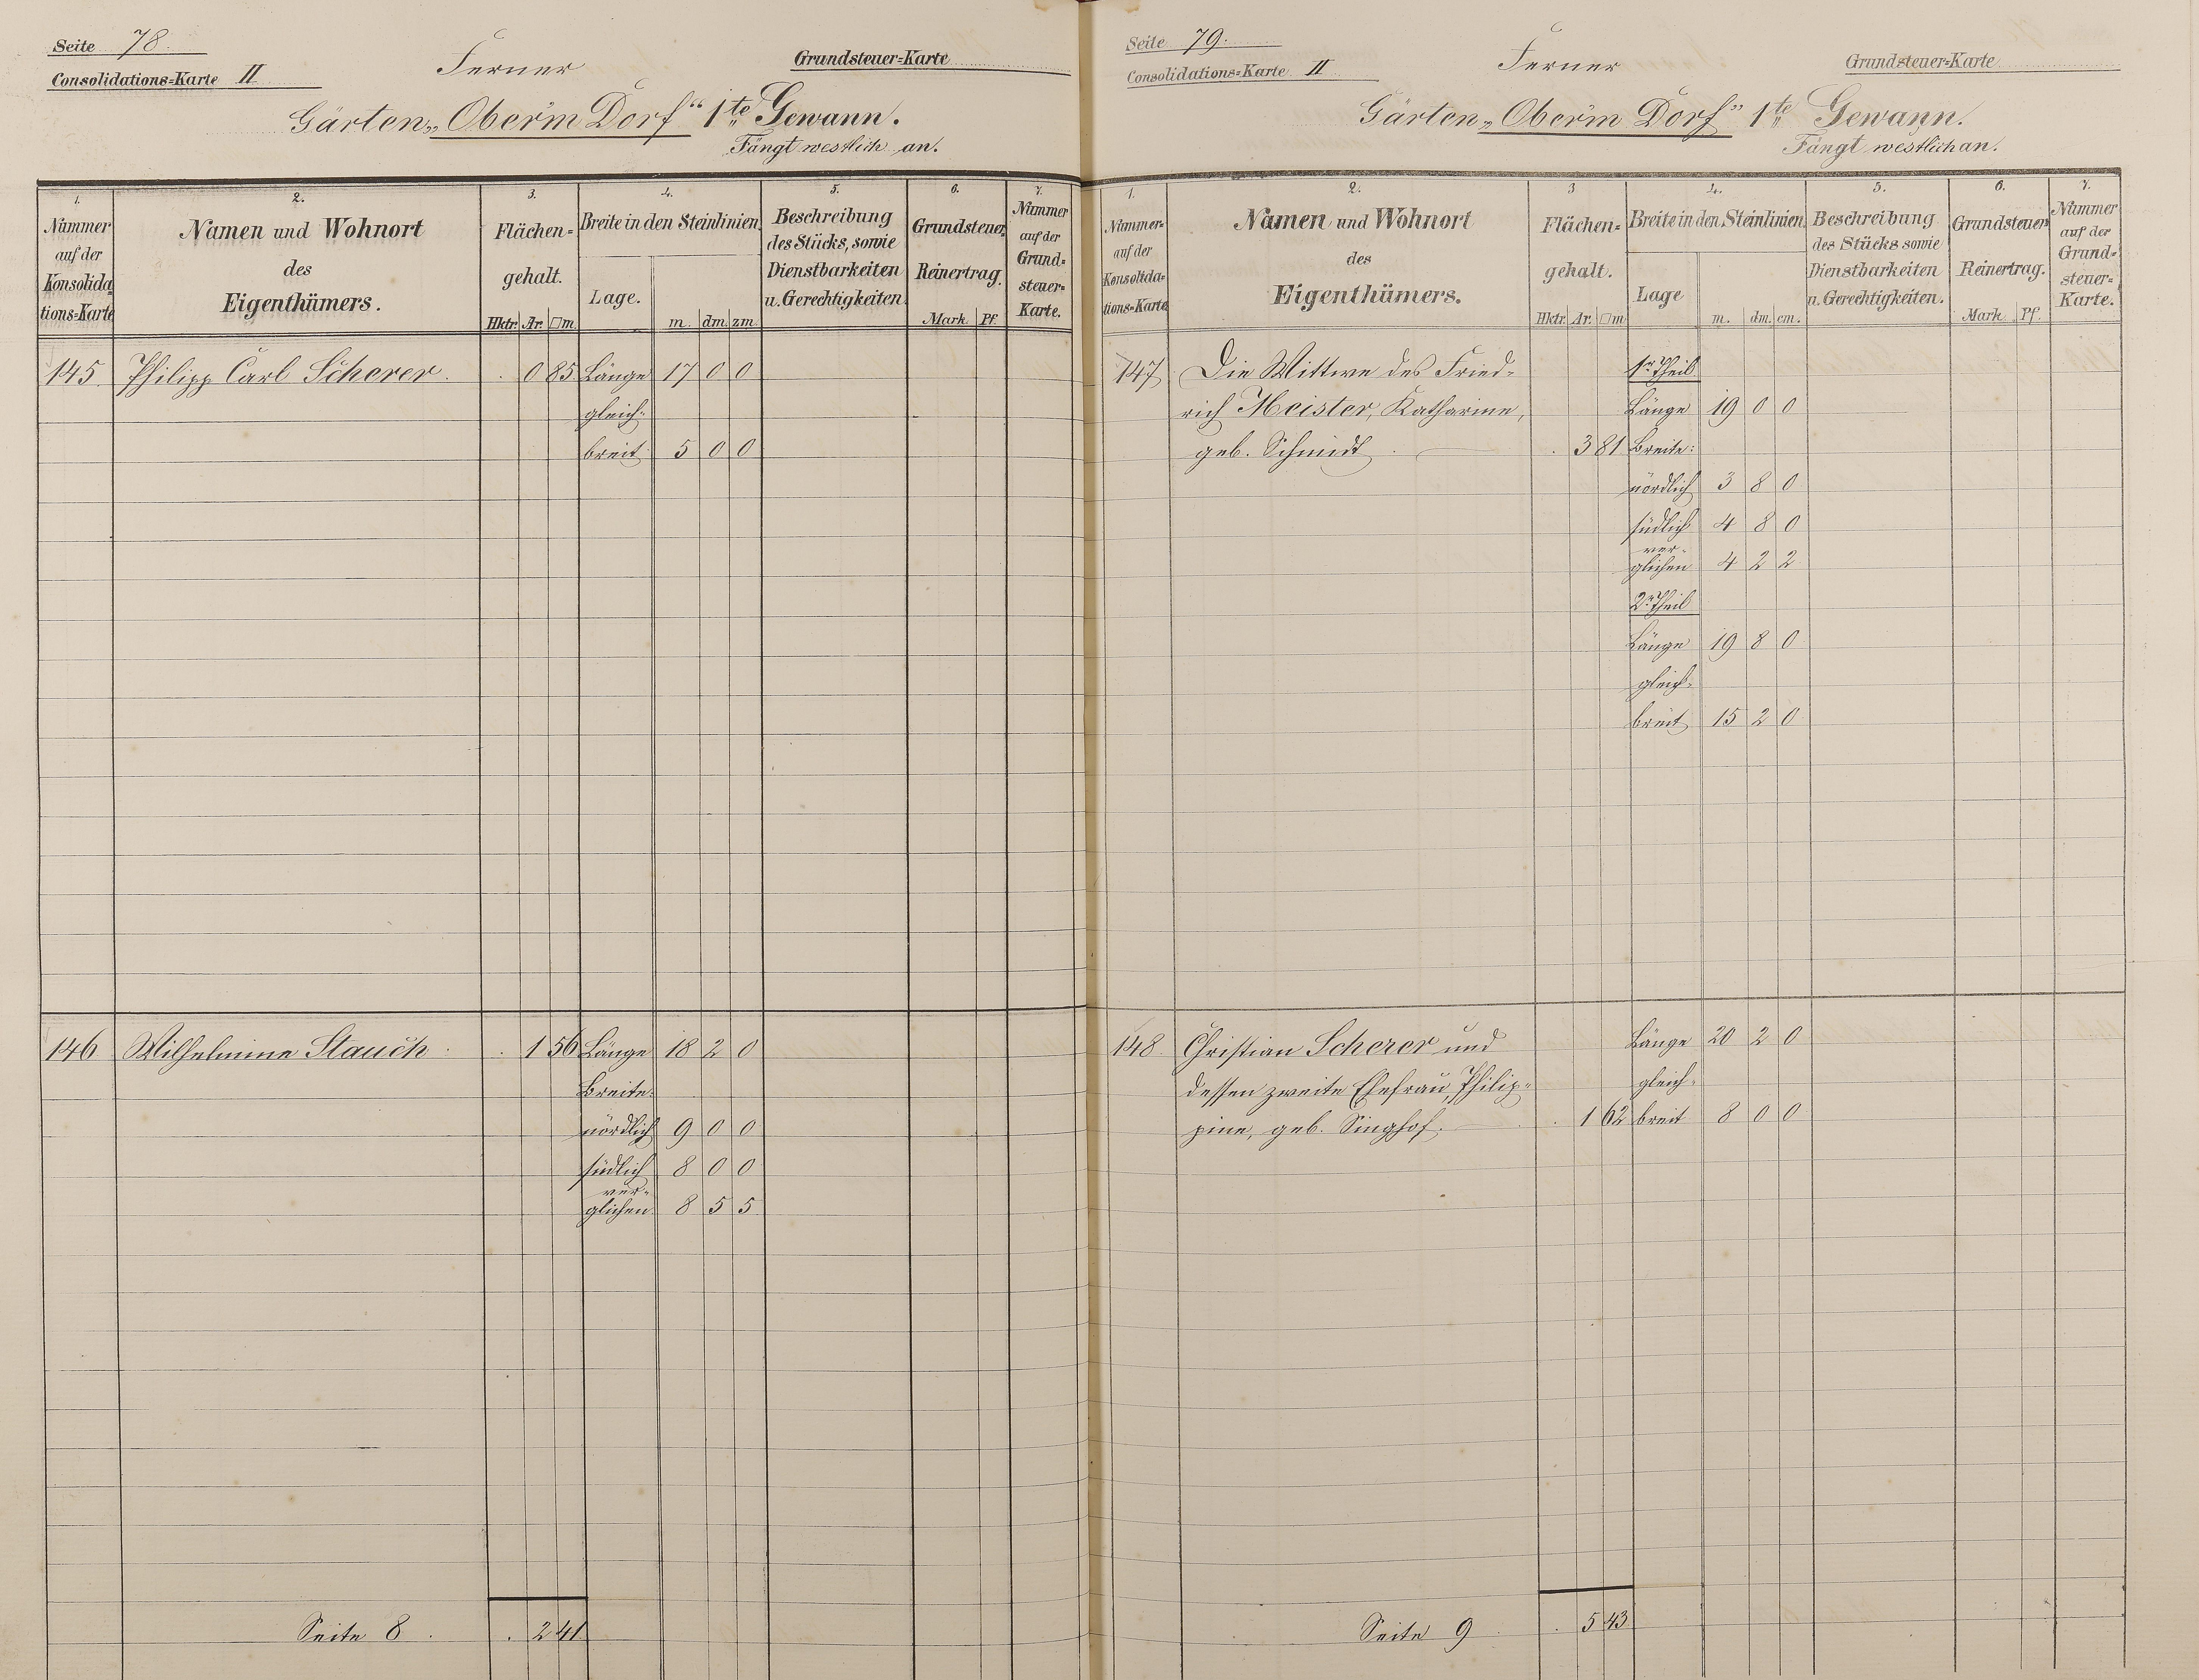 Seite 78.
Consolidations=Karte II
Ferner
Grundsteuer=Karte
Gärten „Ober'm Dorf“ 1te Gewann.
Fängt westlich an.
1. 2. 3. 4. 5. 6. 7.
Nummer auf der Konsolidations=Karte
Namen und Wohnort des Eigenthümers.
Flächen=gehalt.
Hktr. Ar. □m
Breite in den Steinlinien.
Lage.
m. dm. zm
Beschreibung des Stücks, sowie Dienstbarkeiten u. Gerechtigkeiten.
Grundsteuer Reinertrag.
Mark. Pf.
Nummer auf der Grund=steuer=Karte.
145. Philipp Carl Scherer . . 0 85 Länge 17 0 0
gleich=
breit 5 0 0
146 Wilhelmine Stauch . . 1 56 Länge 18 2 0
Breite:
nördlich 9 0 0
südlich 8 0 0
ver=
glichen 8 5 5
Seite 8 . . 2 41
Seite 79.
Consolidations=Karte II
Ferner
Grundsteuer=Karte
Gärten „Ober'm Dorf“ 1te Gewann.
Fängt westlich an.
1. 2. 3 4. 5. 6. 7.
Nummer auf der Konsolidations=Karte
Namen und Wohnort des Eigenthümers.
Flächen=gehalt.
Hktr. Ar. □m
Breite in den Steinlinien.
Lage
m. dm. cm.
Beschreibung des Stücks sowie Dienstbarkeiten u. Gerechtigkeiten.
Grundsteuer Reinertrag.
Mark. Pf.
Nummer auf der Grund=steuer=Karte.
147 Die Wittwe des Fried= 1r Theil
rich Meister, Katharine, Länge 19 0 0
geb. Schmidt . . 3 81 Breite:
nördlich 3 8 0
südlich 4 8 0
ver=
glichen 4 2 2
2r Theil
Länge 19 8 0
gleich=
breit 15 2 0
148. Christian Scherer und Länge 20 2 0
dessen zweite Ehefrau, Philip= gleich=
pine, geb. Singhof. . 1 62 breit 8 0 0
Seite 9 . . 5 43